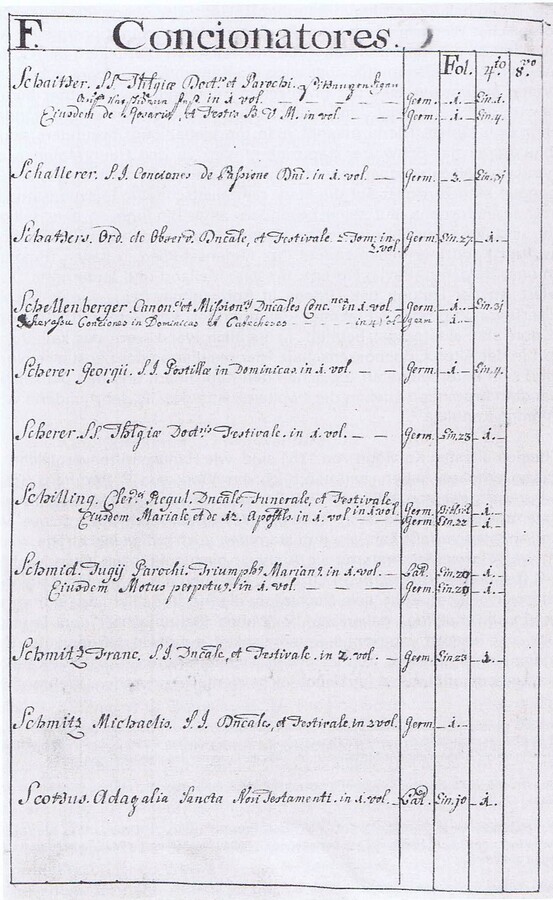 F. Concionatores.
Fol. 4to 8vo
Schaitzer. SS. Thlgiæ Doct. et Parochi.
in 1. vol. — — — Germ. 1. Ein. 1.
Ejusdem de Rosario, et Festis B. V. M. in vol. — Germ. 1. Ein. 4.
Schallerer. S.J. Conciones de Passione Dni. in 1. vol. — Germ. 3. Ein. 31
Ord. de Observ. Dncale, et Festivale 2 Tom: in Germ. Ein. 27. 1.
2. vol.
Schellenberger. Canon. et Mission. Dncales Conc. in 1. vol. — Germ. 1. Ein. 31
Conciones in Dominicas et Catecheses — in 4 vol. Germ 1.
Scherer Georgii. S.J. Postillæ in Dominicas. in 1. vol. — — Germ. 1. Ein. 4.
Scherer. SS. Thlgiæ Doct. Festivale. in 1. vol. — — Germ. Ein. 23. 1.
Schilling. Cler. Regul. Dncale, Funerale, et Festivale
in 1 vol. Germ. 1.
Ejusdem Mariale, et de 12. Apostolis in 1. vol Germ. Ein. 22 1.
Schmid. Parochi. Triumph. Marian. in 1. vol. Lat. Ein. 20 1.
Ejusdem Motus perpetuus. in 1. vol. Germ. Ein. 20 1.
Schmitz Franc. S.J. Dncale, et Festivale. in 2. vol. — Germ. Ein. 23 1.
Schmitz Michaelis. S.J. Dncale, et Festivale. in 2 vol. Germ. 1.
Scottus. Adagalia Sancta Novi Testamenti. in 1. vol. Lat. Ein. 10 1.